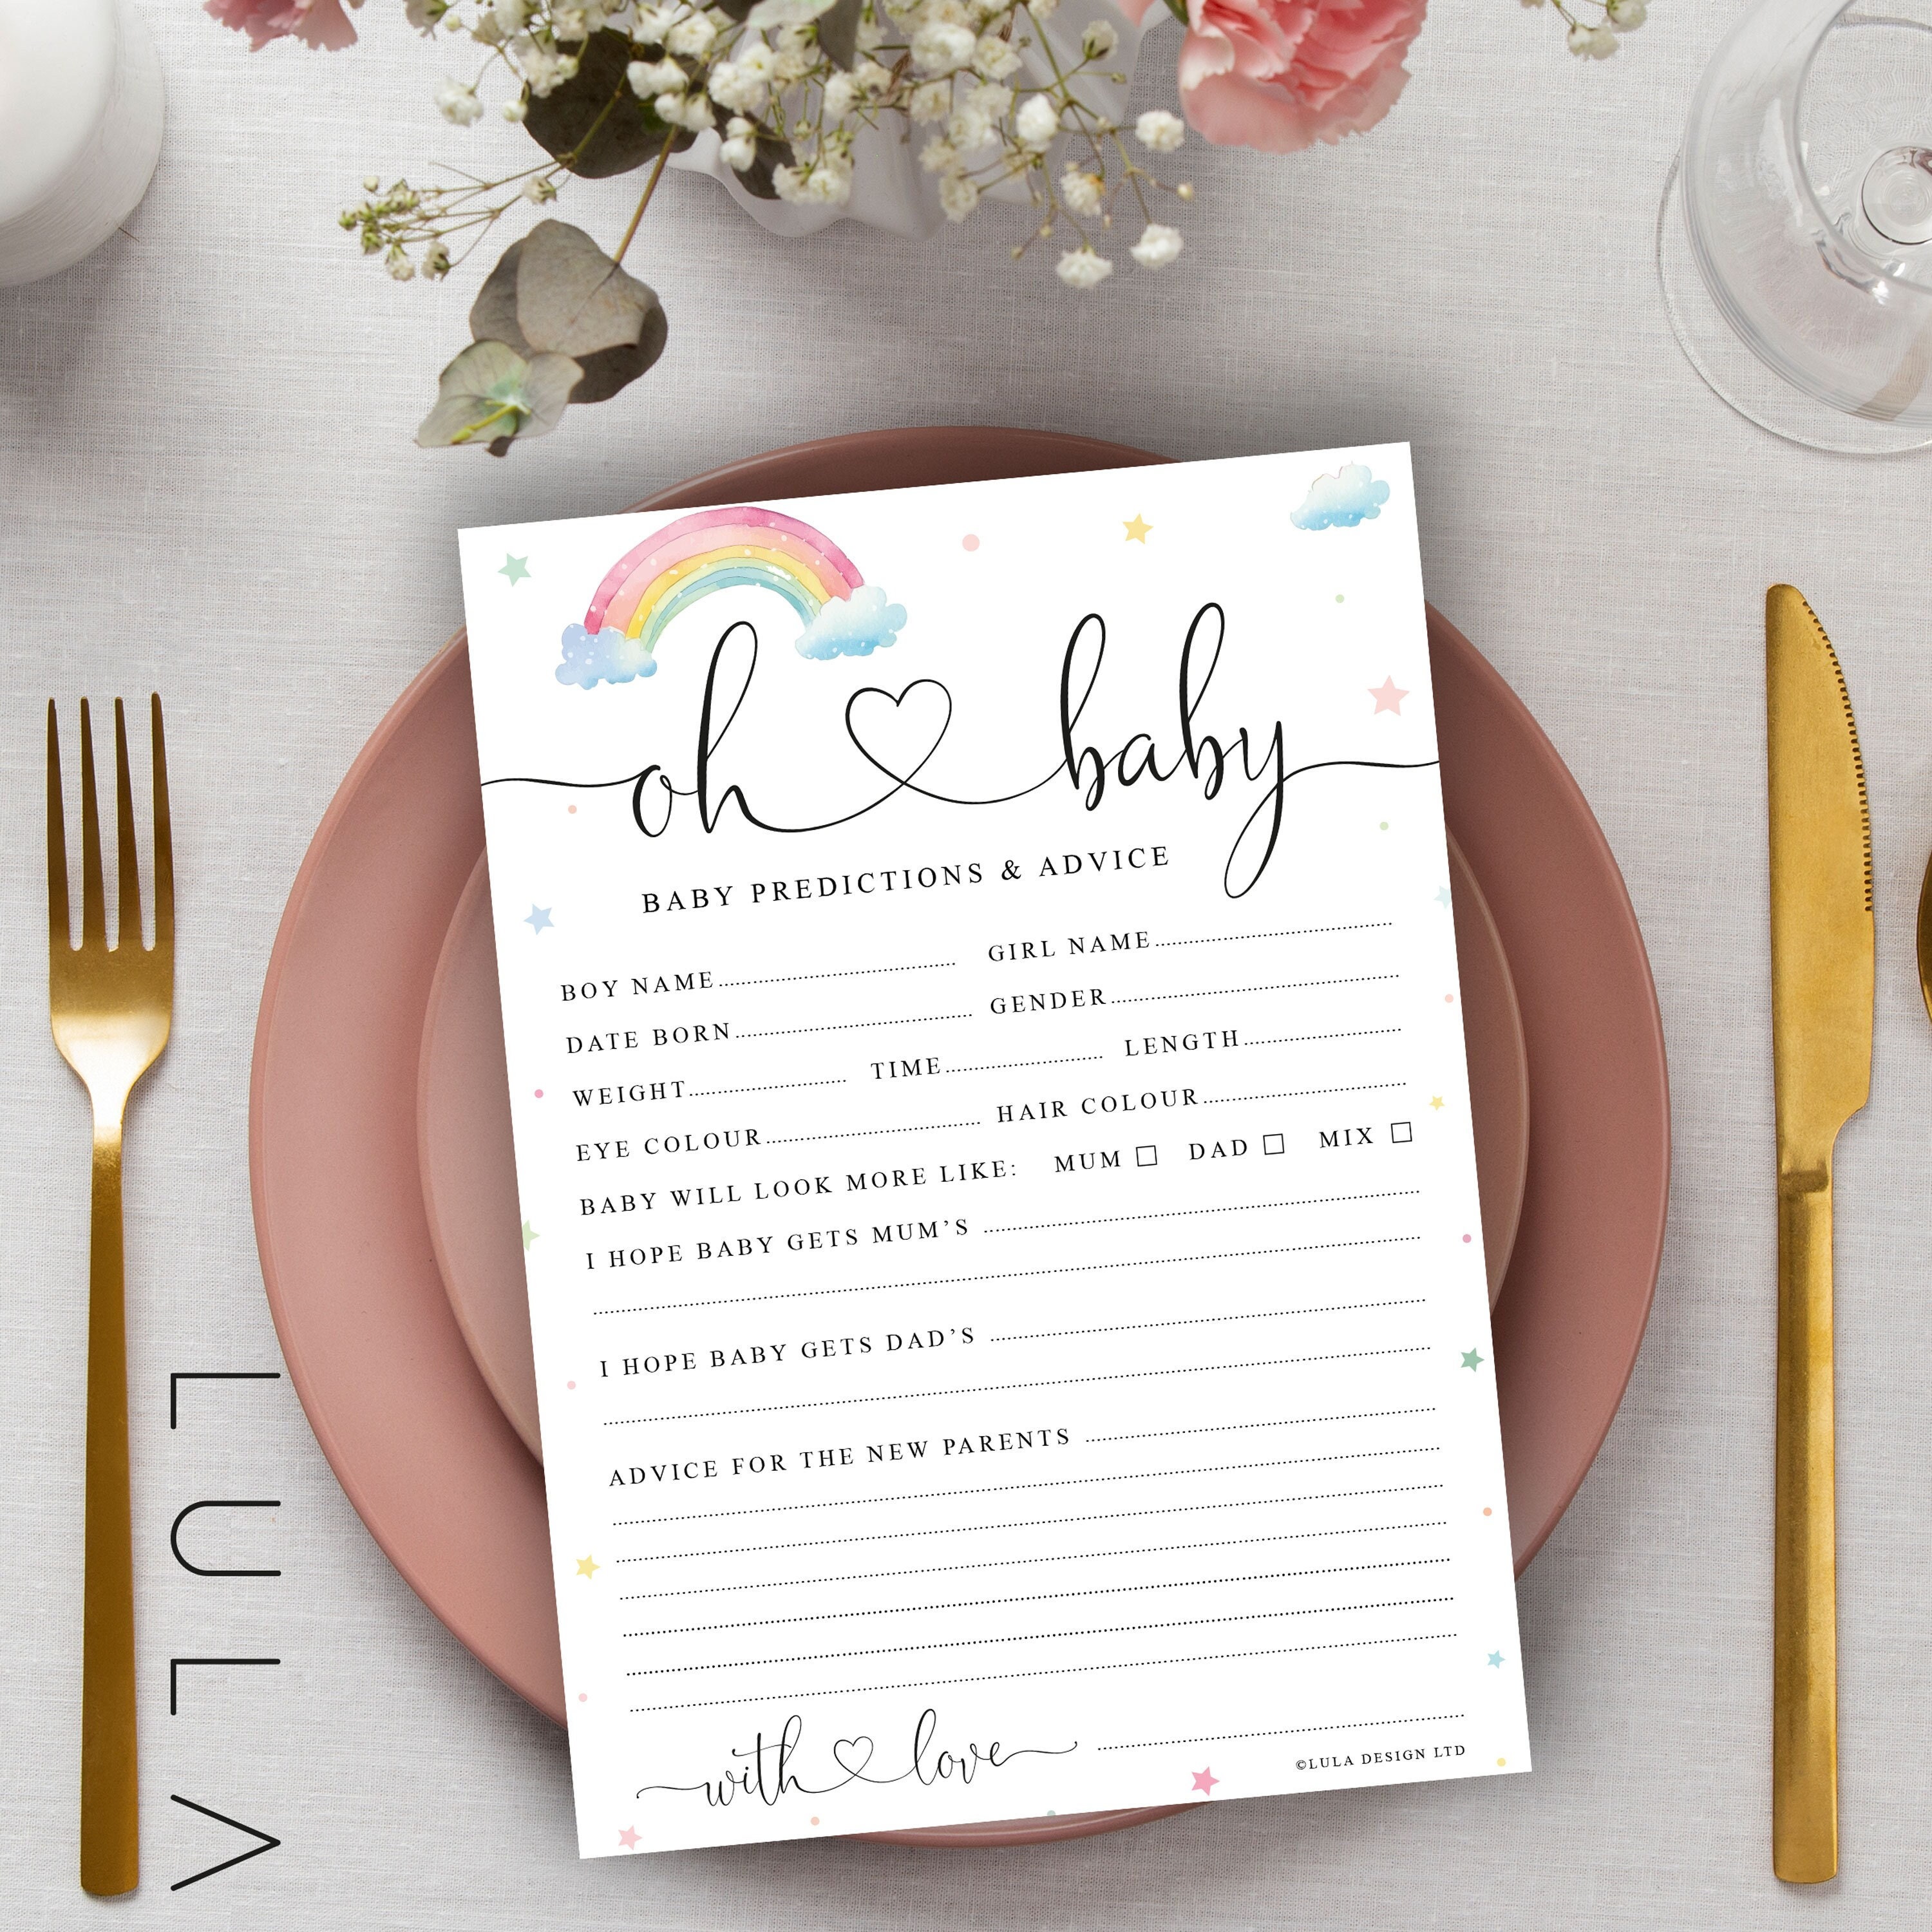 oh baby
BABY PREDICTIONS & ADVICE
BOY NAME GIRL NAME
DATE BORN GENDER
WEIGHT TIME LENGTH
EYE COLOUR HAIR COLOUR
BABY WILL LOOK MORE LIKE: MUM DAD MIX
I HOPE BABY GETS MUM’S
I HOPE BABY GETS DAD’S
ADVICE FOR THE NEW PARENTS
with love
©LULA DESIGN LTD
LULV